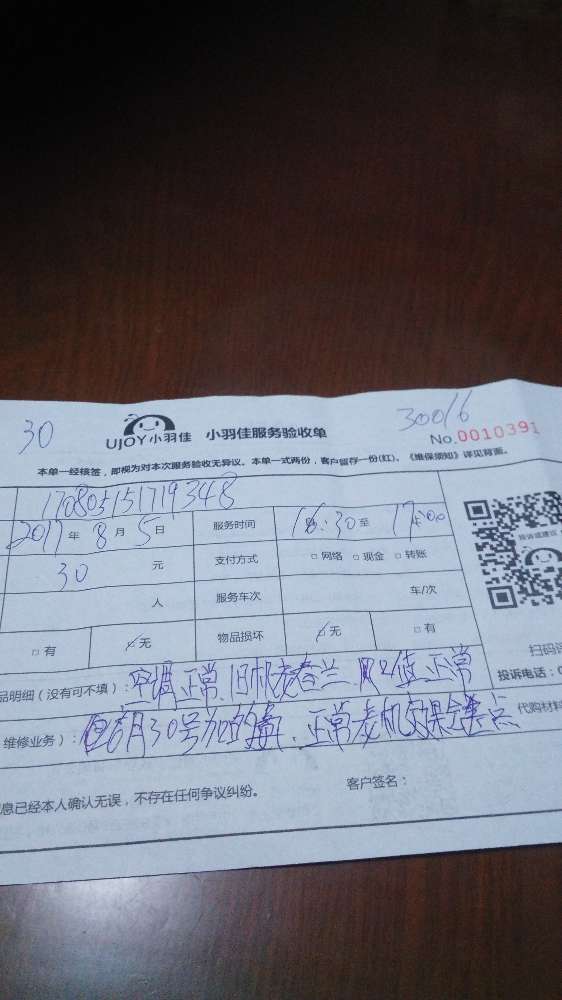 30
30016
UJOY小羽佳 小羽佳服务验收单
No.0010391
本单一经核签，即视为对本次服务验收无异议。本单一式两份，客户留存一份(红)。《维保须知》详见背面。
170805151719348
2017年8月5日 服务时间 16:30至17:00
30元 支付方式 □网络 □现金 □转账
人 服务车次 车/次
□有 ☑无 物品损坏 ☑无 □有
投诉或建议
扫码
品明细（没有可不填）：空调正常、旧机老春兰、风口值正常
投诉电话：0
维修业务）： 月30号加的氟、正常老机效果会差点
代购材料
息已经本人确认无误，不存在任何争议纠纷。
客户签名：